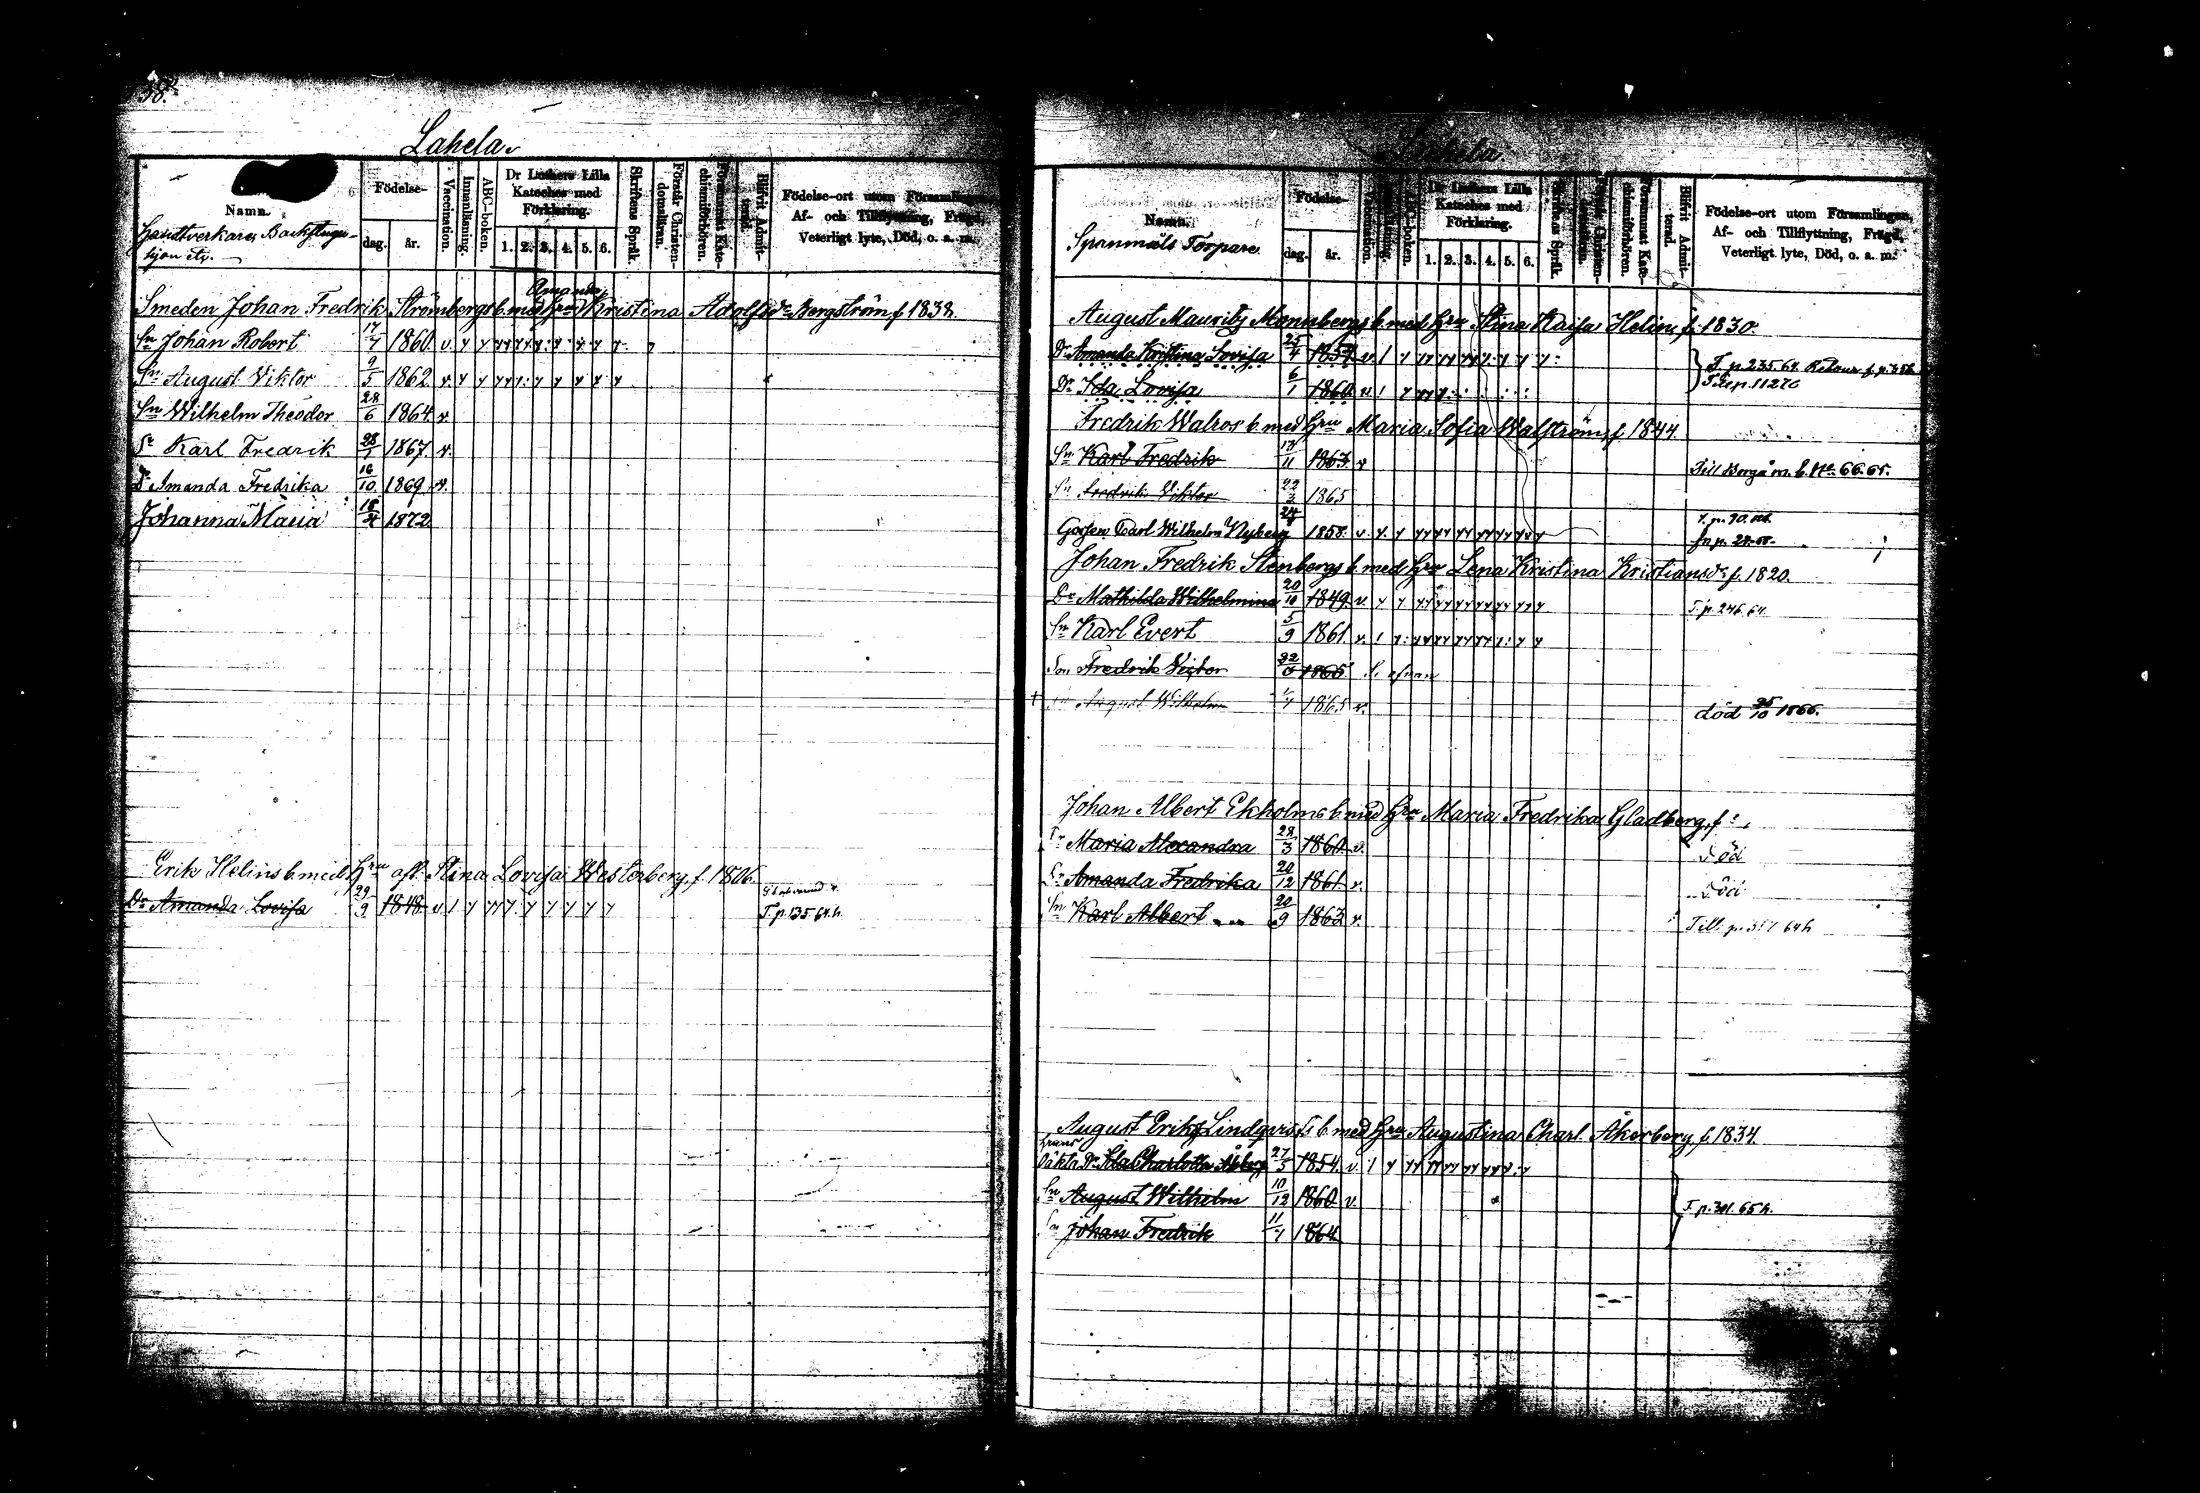 Lahela
Namn.
Handtverkare, Backstugu-
hjon etc.
Födelse-
dag.
år.
Vaccination.
Innanläsning.
ABC-boken.
Dr Luthers Lilla
Kateches med
Förklaring.
1. 2. 3. 4. 5. 6.
Skriftens Språk.
Förstår Christen-
domsläran.
Försummat Kate-
chismiförhören.
Blifvit Admit-
terad.
Födelse-ort utom Församlingen,
Af- och Tillflyttning, Frägd,
Veterligt lyte, Död, o. a. m.
Amanda
Smeden Johan Fredrik Strömbergs b. med Hru Kristina Adolfsdr Bergström f 1838.
Sn Johan Robert 17/7 1860 v.
Sn August Viktor 9/5 1862 v.
Sn Wilhelm Theodor 28/6 1864 v.
Sn Karl Fredrik 28/1 1867 v.
Dr Amanda Fredrika 16/10 1869 v.
Johanna Maria 18/4 1872
Erik Helins b. med Hru afl. Stina Lovisa Westerberg, f. 1806.
Dr Amanda Lovisa 29/9 1848 v
T. p. 135 64 h.
Lahela
Namn.
Spanmåls Torpare
Födelse-
dag.
år.
Vaccination.
ABC-boken.
Dr Luthers Lilla
Kateches med
Förklaring.
1. 2. 3. 4. 5. 6.
Skriftens Språk.
Försummat Kate-
chismiförhören.
Blifvit Admit-
terad.
Födelse-ort utom Församlingen,
Af- och Tillflyttning, Frägd,
Veterligt lyte, Död, o. a. m.
August Mauritz Mannbergs b. med Hru Stina Kaisa Helin, f. 1830.
Dr Amanda Kristina Lovisa 25/4 1857 v.
T. p. 235. 64. Retour f. p. 356
Dr Ida Lovisa 6/1 1860 v.
Fredrik Walros b. med Hru Maria Sofia Walström, f 1844.
Sn Karl Fredrik 11 1863 v
Till Borgå m. b. No 66. 65.
Sn Fredrik Viktor 22/3 1865
Gossen Carl Wilhelm Nyberg 24 1858. v.
Johan Fredrik Stenbergs b. med Hru Lena Kristina Kristiansdr f. 1820.
Dr Mathilda Wilhelmina 20/10 1849 v.
T. p. 246. 64.
Sn Karl Evert 5/9 1861. v.
Son Fredrik Victor 22 1865 S. ofvan
Sn August Wilhelm 1/7 1865 v.
död 25/10 1866.
Johan Albert Ekholms b. med Hru Maria Fredrika Gladberg, f
Dr Maria Alexandra 28/3 1860 v.
Död
Dr Amanda Fredrika 20/12 1861 v.
Död
Sn Karl Albert 20/9 1863 v.
Till. p. 64 h
August Erik Lindqvists b. med Hru Augustina Charl. Åkerberg, f. 1834.
hrans
Oäkta Dr Ida Charlotta 27/5 1854. v.
Sn August Wilhelm 10/12 1860 v.
T. p. 301. 65 h.
Sn Johan Fredrik 11/7 1864